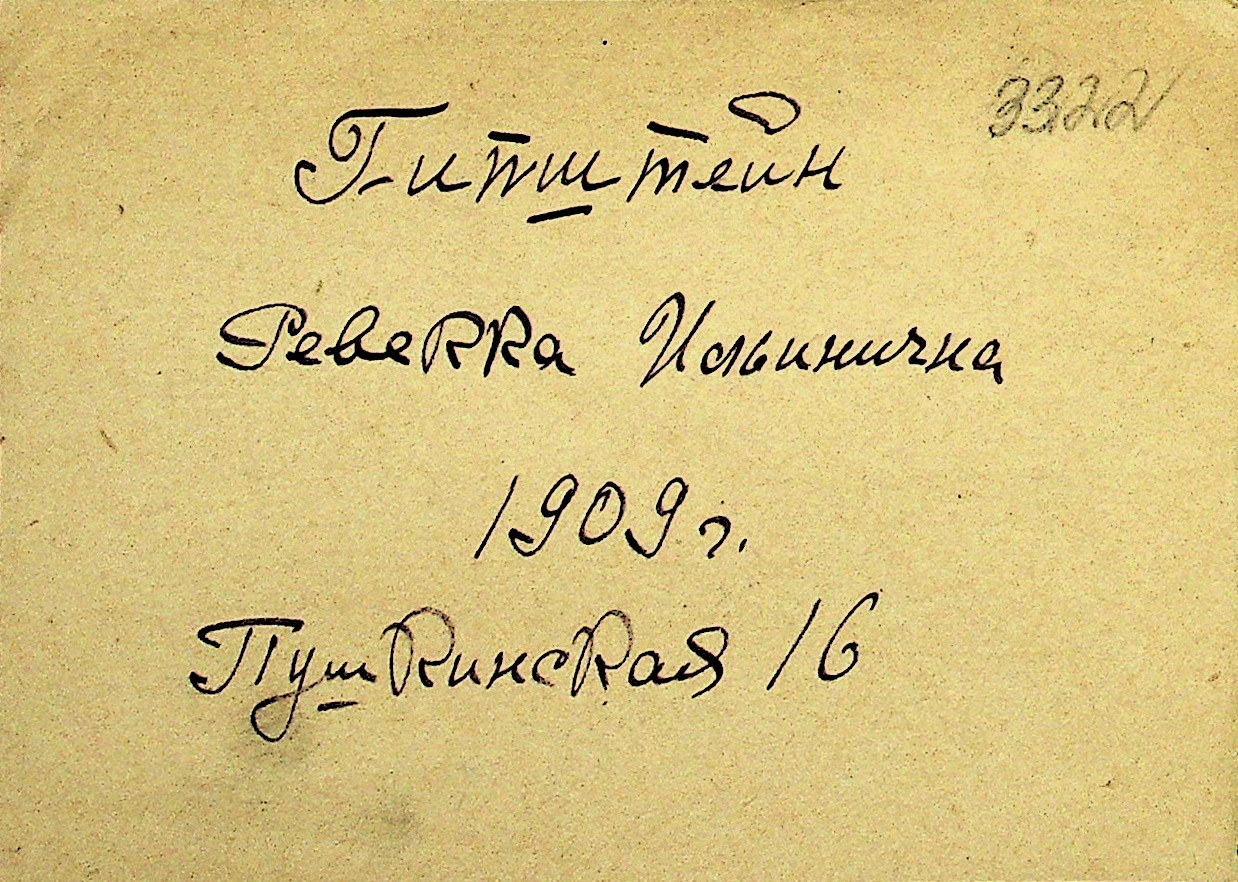 3322
Гипштейн
Ревекка Ильинична
1909 г.
Пушкинская 16